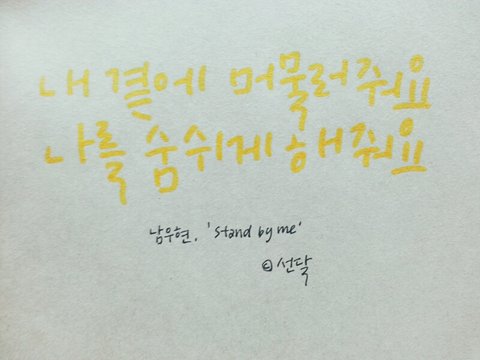 내 곁에 머물러줘요
나를 숨쉬게 해줘요
남우현. 'stand by me'
ⓒ선달